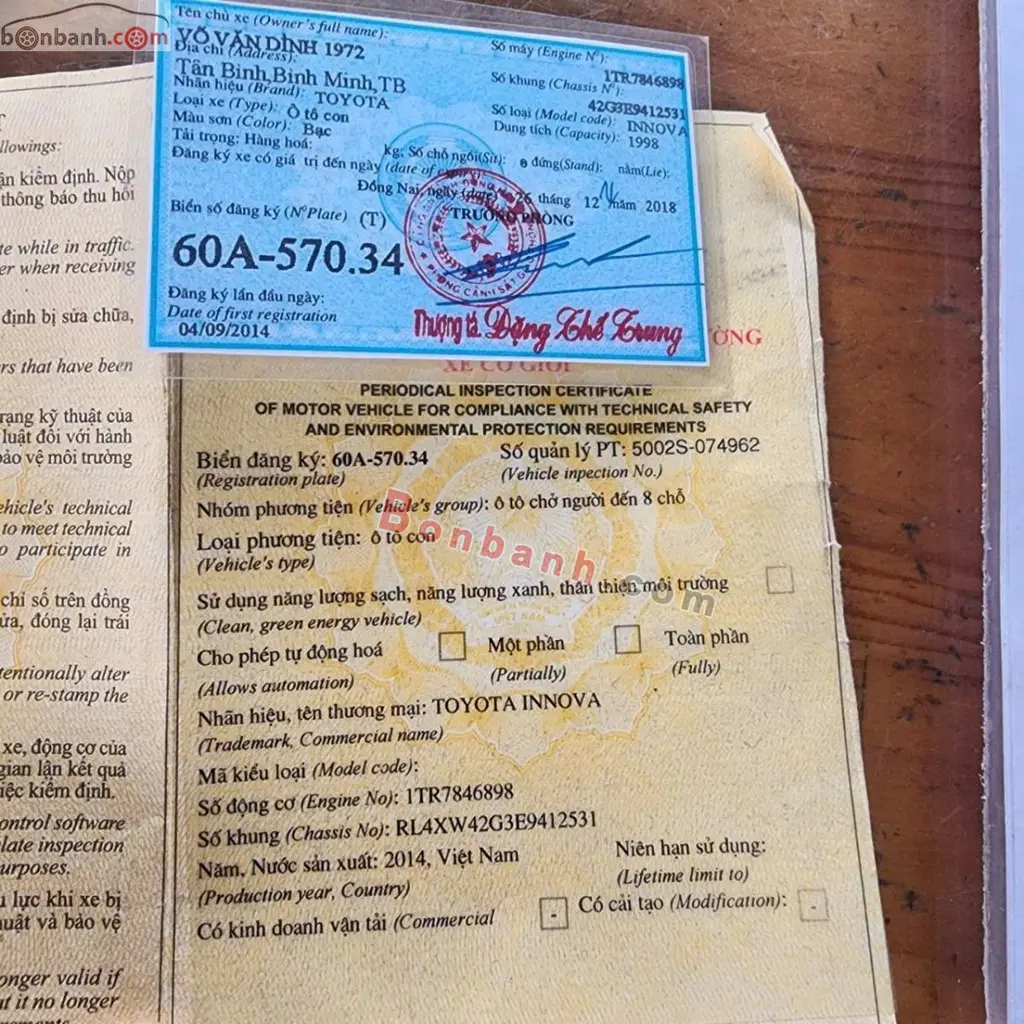 bonbanh.com
Tên chủ xe (Owner's full name):
VÕ VĂN DÌNH 1972
Địa chỉ (Address):
Tân Bình,Bình Minh,TB
Nhãn hiệu (Brand): TOYOTA
Loại xe (Type): Ô tô con
Màu sơn (Color): Bạc
Tải trọng: Hàng hoá: kg; Số chỗ ngồi(Sit): 8 đứng(Stand): nằm(Lie):
Số máy (Engine Nº):
1TR7846898
Số khung (Chassis Nº):
42G3E9412531
Số loại (Model code): INNOVA
Dung tích (Capacity): 1998
Đăng ký xe có giá trị đến ngày (date of expiry)
Đồng Nai, ngày (date) 26 tháng 12 năm 2018
Biển số đăng ký (NºPlate) (T)
TRƯỞNG PHÒNG
60A-570.34
Đăng ký lần đầu ngày:
Date of first registration
04/09/2014
Thượng tá. Đặng Thế Trung
llowings:
ận kiểm định. Nộp
thông báo thu hồi
te while in traffic.
er when receiving
định bị sửa chữa,
rs that have been
rạng kỹ thuật của
luật đối với hành
bảo vệ môi trường
ehicle's technical
to meet technical
o participate in
chỉ số trên đồng
ửa, đóng lại trái
tentionally alter
or re-stamp the
xe, động cơ của
gian lận kết quả
iệc kiểm định.
ontrol software
late inspection
urposes.
u lực khi xe bị
huật và bảo vệ
onger valid if
t it no longer
ƯỜNG
XE CƠ GIỚI
PERIODICAL INSPECTION CERTIFICATE
OF MOTOR VEHICLE FOR COMPLIANCE WITH TECHNICAL SAFETY
AND ENVIRONMENTAL PROTECTION REQUIREMENTS
Biển đăng ký: 60A-570.34 Số quản lý PT: 5002S-074962
(Registration plate) (Vehicle inpection No.)
Nhóm phương tiện (Vehicle's group): ô tô chở người đến 8 chỗ
Loại phương tiện: ô tô con
(Vehicle's type)
Bonbanh.com
Sử dụng năng lượng sạch, năng lượng xanh, thân thiện môi trường
(Clean, green energy vehicle)
VIỆT NAM
Cho phép tự động hoá Một phần Toàn phần
(Allows automation) (Partially) (Fully)
Nhãn hiệu, tên thương mại: TOYOTA INNOVA
(Trademark, Commercial name)
Mã kiểu loại (Model code):
Số động cơ (Engine No): 1TR7846898
Số khung (Chassis No): RL4XW42G3E9412531
Năm, Nước sản xuất: 2014, Việt Nam Niên hạn sử dụng:
(Production year, Country) (Lifetime limit to)
Có kinh doanh vận tải (Commercial - Có cải tạo (Modification): -